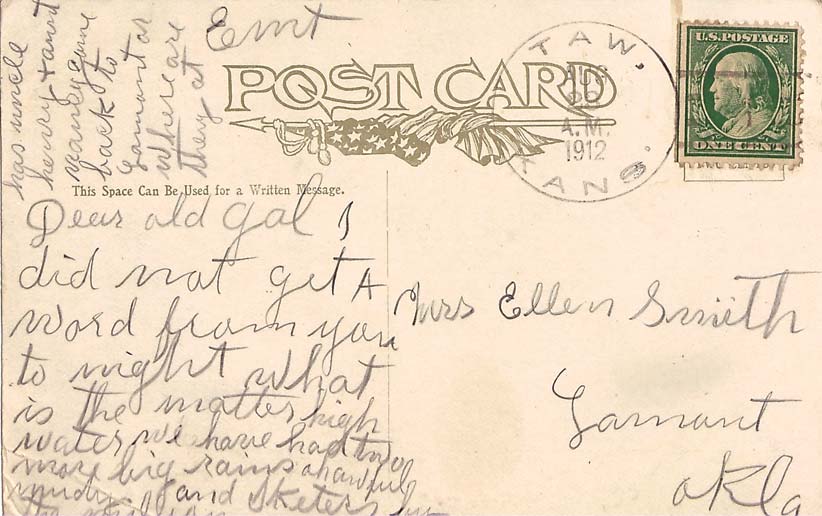 Emt
has uncle
henry + aunt
nancy gone
back to
Lamont or
where are
they at
POST CARD
TAW,
KANS.
AUG
A.M.
1912
U.S. POSTAGE
ONE CENT
This Space Can Be Used for a Written Message.
Dear old Gal I
did not get A
word from you
to night what
is the matter high
water we have had two
more big rains
muddy and Sketers
Mrs Ellen Smith
Lamont
Okla